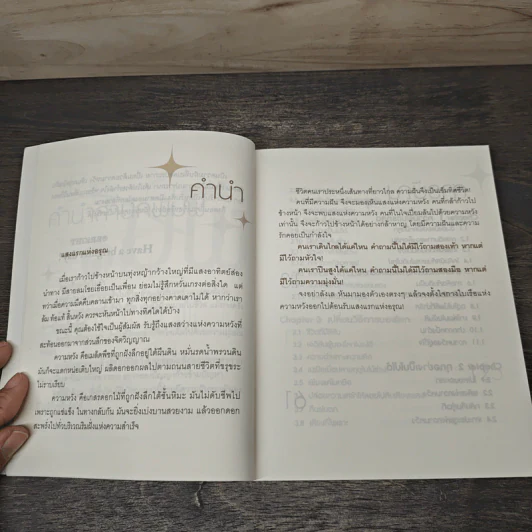 คำนำ
แสงแรกแห่งอรุณ
เมื่อเราก้าวไปข้างหน้าบนทุ่งหญ้ากว้างใหญ่ที่มีแสงอาทิตย์ส่อง
นำทาง มีสายลมโชยเอื่อยเป็นเพื่อน ย่อมไม่รู้สึกหวั่นเกรงต่อสิ่งใด แต่
ทว่าเมื่อความมืดคืบคลานเข้ามา ทุกสิ่งทุกอย่างคาดเดาไม่ได้ หากว่าเรา
ล้ม ท้อแท้ สิ้นหวัง ควรจะหันหน้าไปทางทิศใดได้บ้าง
ขณะนี้ คุณต้องใช้ใจเป็นผู้สัมผัส รับรู้ถึงแสงสว่างแห่งความหวังที่
สะท้อนออกมาจากส่วนลึกของจิตวิญญาณ
ความหวัง คือเมล็ดพืชที่ถูกฝังลึกอยู่ใต้ผืนดิน หมั่นรดน้ำพรวนดิน
มันก็จะแตกหน่อเติบใหญ่ ผลิดอกออกผลไปตามถนนสายชีวิตที่ขรุขระ
ไม่ราบเรียบ
ความหวัง คือเกสรดอกไม้ที่ถูกฝังลึกใต้ชั้นหิมะ มันไม่ดับชีพไป
เพราะถูกแช่แข็ง ในทางกลับกัน มันจะยิ่งเบ่งบานสวยงาม แล้วออกดอก
สะพรั่งไปทั่วบริเวณริมฝั่งแห่งความสำเร็จ
ชีวิตคนเราประหนึ่งเส้นทางที่ยาวไกล ความฝันจึงเป็นเข็มทิศชีวิต
คนที่มีความฝัน จึงจะมองเห็นแสงแห่งความหวัง คนที่กล้าก้าวไป
ข้างหน้า จึงจะพบแสงแห่งความหวัง คนที่ในใจเปี่ยมล้นไปด้วยความหวัง
เท่านั้น จึงจะก้าวไปข้างหน้าได้อย่างกล้าหาญ โดยมีความฝันและความ
รักคอยเป็นกำลังใจ
คนเราเดินไกลได้แค่ไหน คำถามนี้ไม่ได้มีไว้ถามสองเท้า หากแต่
มีไว้ถามหัวใจ!
คนเราปีนสูงได้แค่ไหน คำถามนี้ไม่ได้มีไว้ถามสองมือ หากแต่
มีไว้ถามความมุ่งมั่น!
จงอย่าลังเล หันมามองตัวเองตรงๆ แล้วจงตั้งใจกางใบเรือแห่ง
ความหวังออกไปต้อนรับแสงแรกแห่งอรุณ!